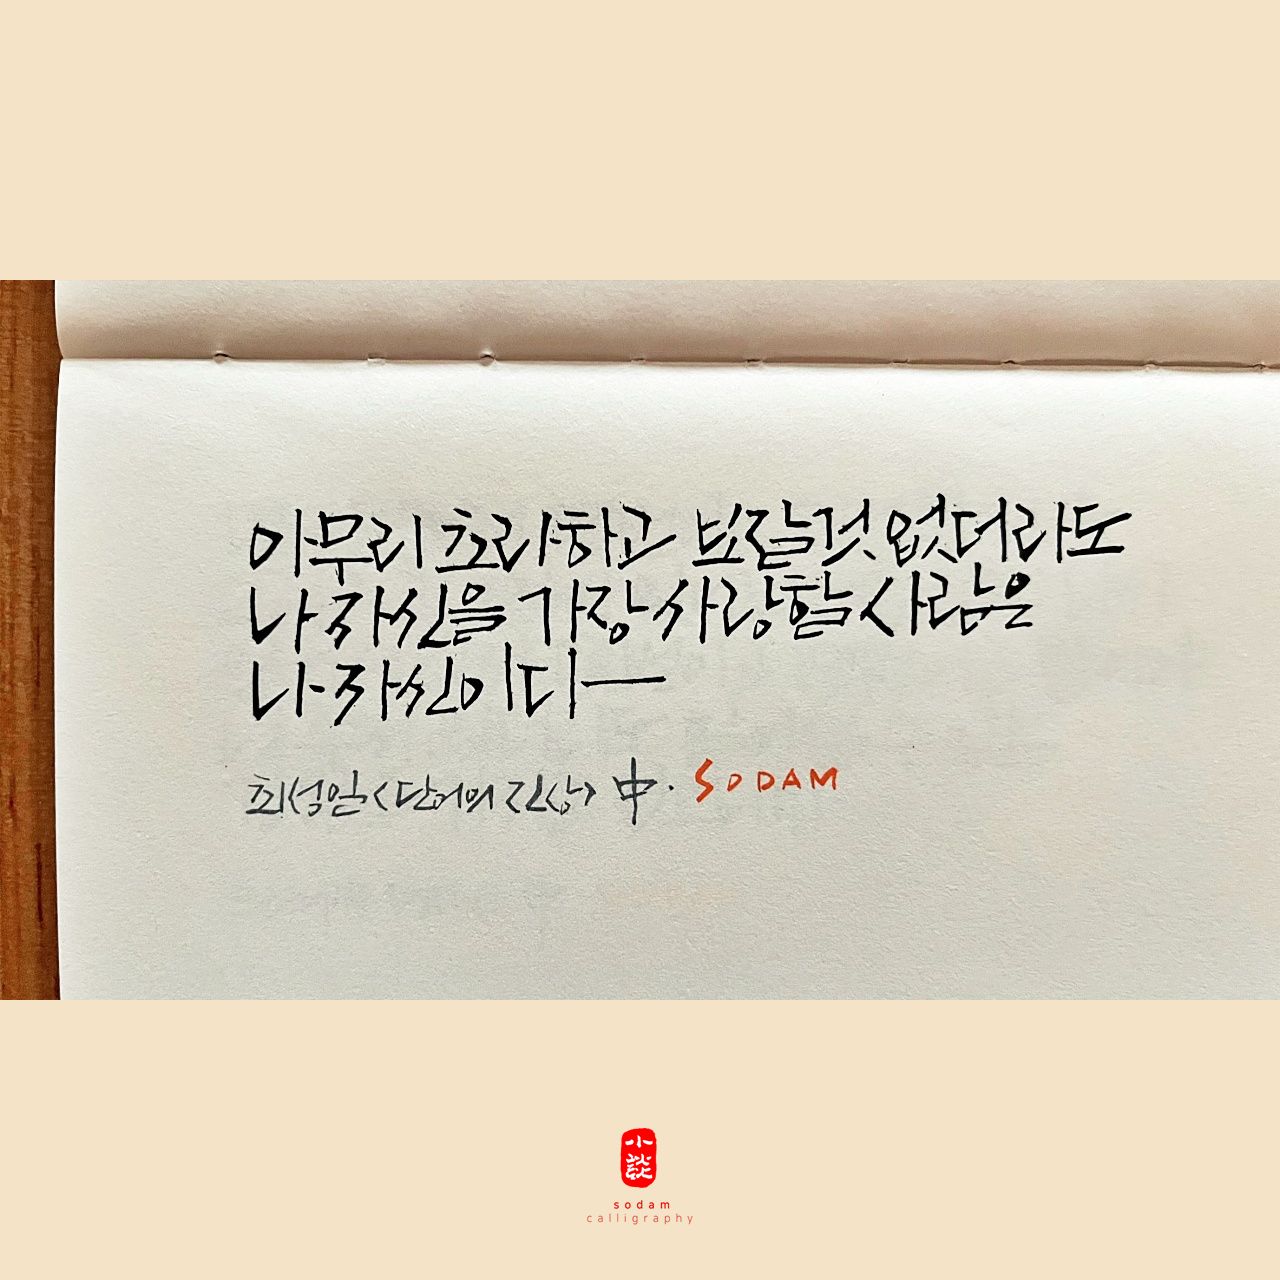 아무리 초라하고 보잘것 없더라도
나 자신을 가장 사랑할 사람은
나 자신이다
최성일 <단어의 진상> 中. SODAM
小談
sodam
calligraphy